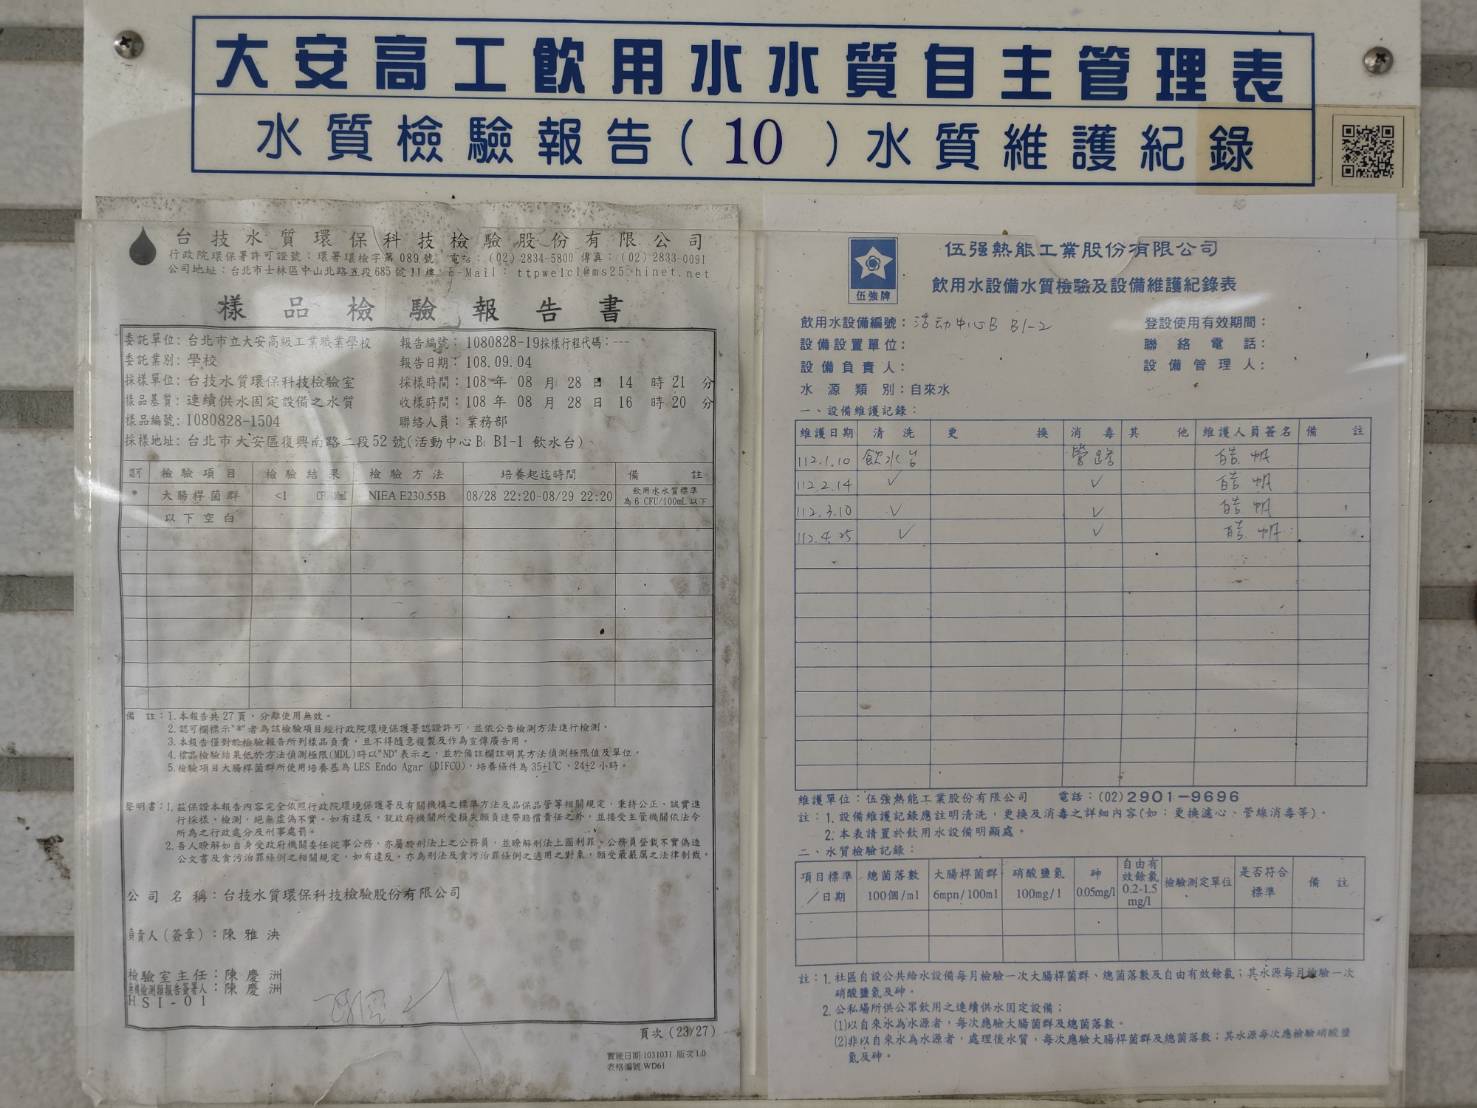 大安高工飲用水水質自主管理表
水質檢驗報告(10)水質維護紀錄
台技水質環保科技檢驗股份有限公司
行政院環保署許可證號：環署環檢字第089號 電話：(02)2834-5800 傳真：(02)2833-0091
公司地址：台北市士林區中山北路五段685號11樓 E-Mail：ttpwelcl@ms25.hinet.net
樣品檢驗報告書
委託單位：台北市立大安高級工業職業學校 報告編號：1080828-19採樣行程代碼：---
委託業別：學校 報告日期：108.09.04
採樣單位：台技水質環保科技檢驗室 採樣時間：108年08月28日14時21分
樣品基質：連續供水固定設備之水質 收樣時間：108年08月28日16時20分
樣品編號：1080828-1504 聯絡人員：業務部
採樣地址：台北市大安區復興南路二段52號(活動中心B: B1-1 飲水台)
檢驗項目 檢驗結果 檢驗方法 培養起迄時間 備註
* 大腸桿菌群 <1 NIEA E230.55B 08/28 22:20-08/29 22:20 飲用水水質標準
為6 CFU/100mL以下
以下空白
備 註：1.本報告共27頁，分離使用無效。
2.認可欄標示"*"者為該檢驗項目經行政院環境保護署認證許可，並依公告檢測方法進行檢測。
3.本報告僅對於檢驗報告所列樣品負責，且不得隨意複製及作為宣傳廣告用。
4.樣品檢驗結果低於方法偵測極限(MDL)時以"ND"表示之，並於備註欄註明其方法偵測極限值及單位。
5.檢驗項目大腸桿菌群所使用培養基為LES Endo Agar (DIFCO)，培養條件為35±1℃、24±2小時。
聲明書：1.茲保證本報告內容完全依照行政院環境保護署及有關機構之標準方法及品保品管等相關規定，秉持公正、誠實進
行採樣、檢測，絕無虛偽不實。如有違反，就政府機關所受損失願負連帶賠償責任之外，並接受主管機關依法令
所為之行政處分及刑事處罰。
2.吾人瞭解如自身受政府機關委任從事公務，亦屬於刑法上之公務員，並瞭解刑法上圖利罪、公務員登載不實偽造
公文書及貪污治罪條例之相關規定，如有違反，亦為刑法及貪污治罪條例之適用之對象，願受最嚴厲之法律制裁。
公司名稱：台技水質環保科技檢驗股份有限公司
負責人(簽章)：陳雅泱
檢驗室主任：陳慶洲
無機檢測類報告簽署人：陳慶洲
HSI-01
頁次(23/27)
實施日期1031031 版次1.0
表格編號WD61
伍強牌
伍强熱能工業股份有限公司
飲用水設備水質檢驗及設備維護紀錄表
飲用水設備編號：活動中心B B1-2 登設使用有效期間：
設備設置單位： 聯絡電話：
設備負責人： 設備管理人：
水源類別：自來水
一、設備維護記錄：
維護日期 清洗 更換 消毒 其他 維護人員簽名 備註
112.1.10 飲水台 管路 皓帆
112.2.14 ✓ ✓ 皓帆
112.3.10 ✓ ✓ 皓帆
112.4.25 ✓ ✓ 皓帆
維護單位：伍強熱能工業股份有限公司 電話：(02)2901-9696
註：1.設備維護記錄應註明清洗，更換及消毒之詳細內容(如：更換濾心、管線消毒等)。
2.本表請置於飲用水設備明顯處。
二、水質檢驗記錄：
項目標準／日期 總菌落數100個/ml 大腸桿菌群6mpn/100ml 硝酸鹽氮100mg/l 砷0.05mg/l 自由有效餘氯0.2-1.5mg/l 檢驗測定單位 是否符合標準 備註
註：1.社區自設公共給水設備每月檢驗一次大腸桿菌群、總菌落數及自由有效餘氯；其水源每月檢驗一次
硝酸鹽氮及砷。
2.公私場所供公眾飲用之連續供水固定設備；
(1)以自來水為水源者，每次應驗大腸桿菌群及總菌落數。
(2)非以自來水為水源者，處理後水質，每次應驗大腸桿菌群及總菌落數；其水源每次應檢驗硝酸鹽
氮及砷。